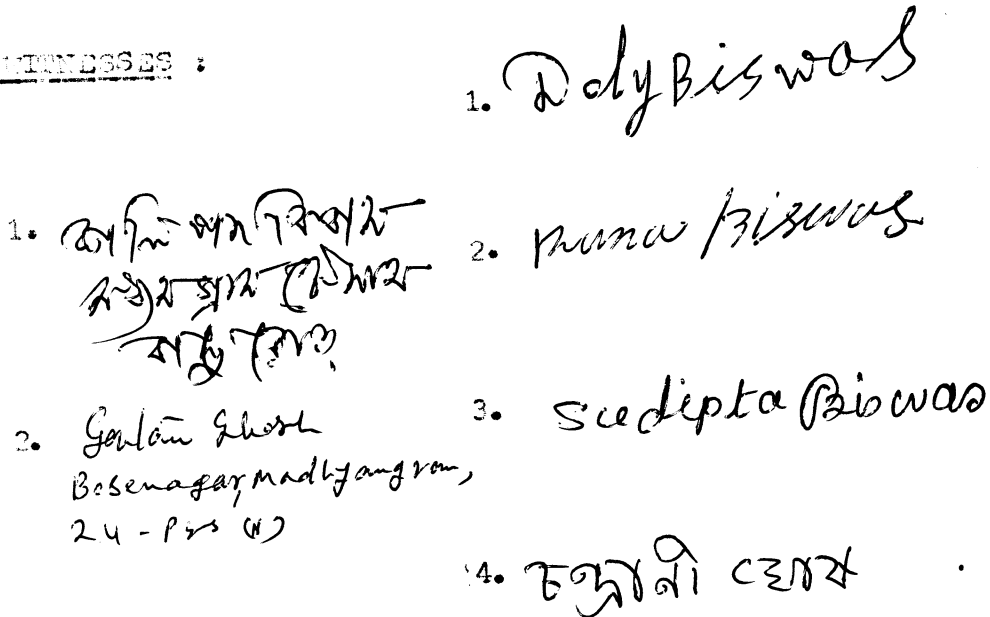 WITNESSES :
1. কালি পদ বিশ্বাস
মধ্যমগ্রাম
2. Goutam Ghosh
Bosenagar, Madhyamgram,
24 - Pgs (N)
1. Doly Biswas
2. Muna Biswas
3. Sudipta Biswas
4. চন্দ্রানী ঘোষ